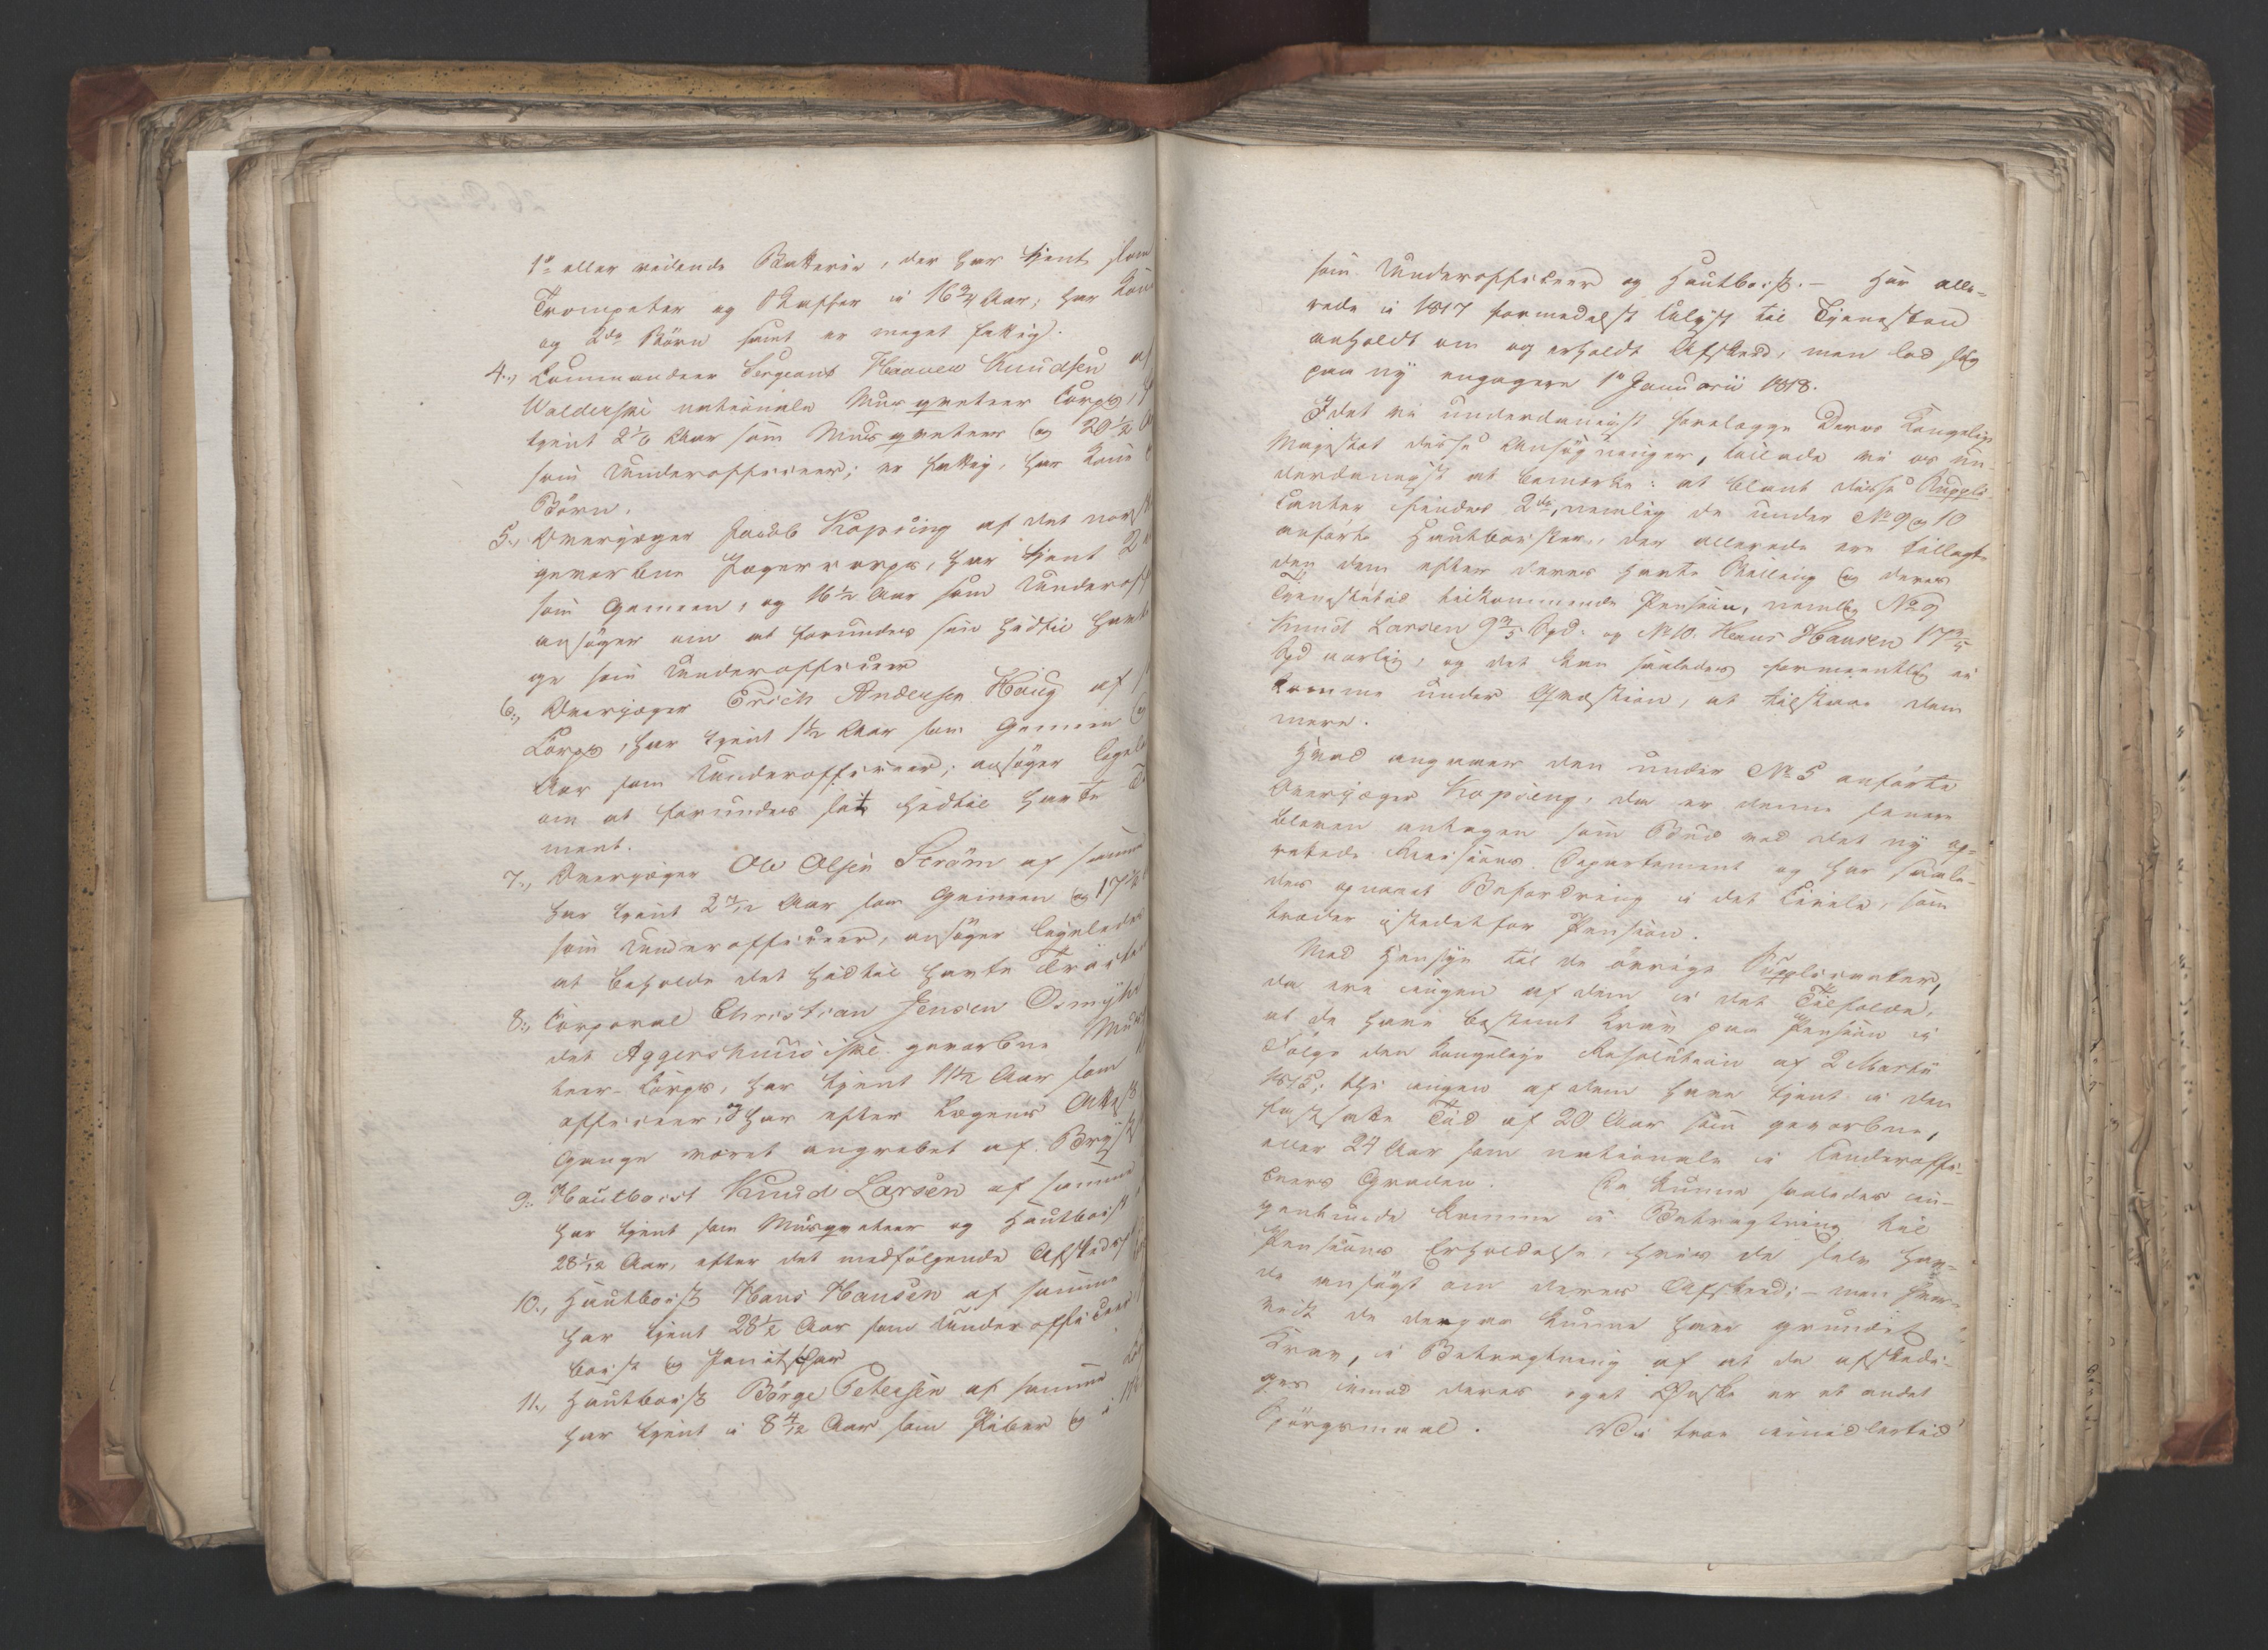 1ste eller ridende Batterie, der har tjent som
Trompeter og Staffer i 16 3/4 Aar; har Kone
og 2de Børn samt er meget fattig.
4., Commandeer Sergeant Haaven Knudsen af
Walderske nationale Musqveteer Corps,
tjent 2 1/6 Aar som Musqveteer og 20 1/2
som Underofficeer; er fattig, har Kone
Børn.
5., Overjæger Jacob Kopsing af det norske
gevorbne Jægercorps, har tjent 2
som Gemeen, og 16 1/2 Aar som Underoff
ansøger om at forundes sin hidtil havte
ge som Underofficeer
6., Overjæger Erich Andersen Haug af
Corps, har tjent 1 1/2 Aar som Gemeen og
Aar som Underofficeer; ansøger ligele
om at forundes sit hidtil havte
ment.
7., Overjæger Ole Olsen Strøm af samme
har tjent 2 7/12 Aar som Gemeen og 17
som Underofficeer, ansøger ligeledes
at beholde det hidtil havte Tractem
8., Corporal Christian Jensen Osmyhr
det Aggershuusiske gevorbne Musqve
teer-Corps, har tjent 11 1/2 Aar som
officeer, og har efter Lægens Attest
Gange været angrebet af Bryst
9., Hautboist Knud Larsen af samme
har tjent som Musqveteer og Hautboist
28 1/12 Aar, efter det medfølgende Afskeds
10., Hautboist Hans Hansen af samme
har tjent 28 1/2 Aar som Underofficeer,
boist og Janitschar
11., Hautboist Børge Petersen af samme
har tjent i 8 4/12 Aar som Piber og i 11
som Underofficeer og Hautboist. – Har alle-
rede i 1817 formedelst Ulyst til Tjenesten
anholdt om og erholdt Afsked, men lod sig
paa ny engagere 1ste Januarii 1818.
Idet vi underdanigst forelægge Deres Kongelige
Majestæt disse Ansøgninger, tillade vi os un-
derdanigst at bemærke: at blant disse Suppli-
canter findes 2de, nemlig de under No 9 og 10
anførte Hautboister, der allerede ere tillagte
den dem efter deres havte Stilling og deres
Tjenestetid tilkommende Pension, nemlig No 9
Knud Larsen 9 3/5 Spd: og No 10. Hans Hansen 17 3/5
Spd aarlig, og det kan saaledes formeentlig ei
komme under Qvæstion, at tilstaae dem
mere.
Hvad angaaer den under No 5 anførte
Overjæger Kopsing, da er denne senere
bleven antagen som Bud ved det ny op-
rettede Revisions Departement og har saale-
des opnaaet Befordring i det Civile, som
træder istedetfor Pension.
Med Hensyn til de øvrige Supplicanter,
da ere ingen af dem i det Tilfælde,
at de have bestemt Krav paa Pension i
Følge den kongelige Resolution af 2 Martii
1815; thi ingen af dem have tjent i den
fastsatte Tid af 20 Aar som gevorbne,
eller 24 Aar som nationale i Underoffi-
ceers Graden. De kunne saaledes in-
genlunde komme i Betragtning til
Pensions Erholdelse, hvis de selv hav-
de ansøgt om deres Afsked; – men hvor-
vidt de derpaa kunne have grundet
Krav, i Betragtning af at de afskedi-
ges imod deres eget Ønske er et andet
Spørgsmaal. Vi troe imidlertid